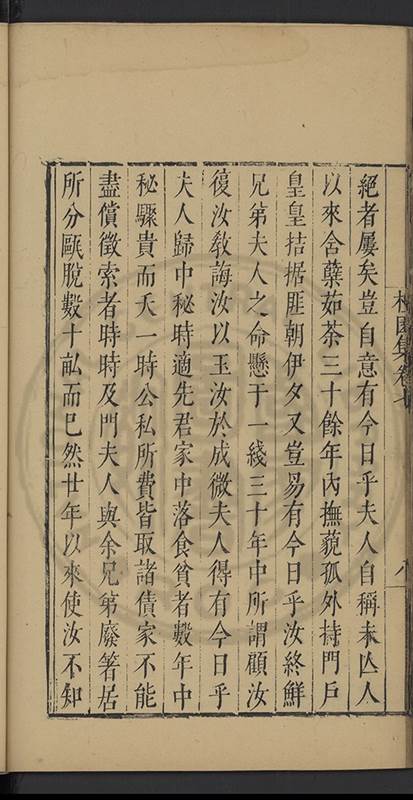 絕者屢矣豈自意有今日乎夫人自稱未亾人
以來含蘗茹荼三十餘年內撫藐孤外持門戶
皇皇拮据匪朝伊夕又豈易有今日乎汝終鮮
兄第夫人之命懸于一綫三十年中所謂顧汝
復汝敎誨汝以玉汝於成微夫人得有今日乎
夫人歸中秘時適先君家中落食貧者數年中
秘驟貴而夭一時公私所費皆取諸債家不能
盡償徵索者時時及門夫人與余兄第廢箸居
所分甌脫數十畆而已然廿年以來使汝不知
園集卷七
八